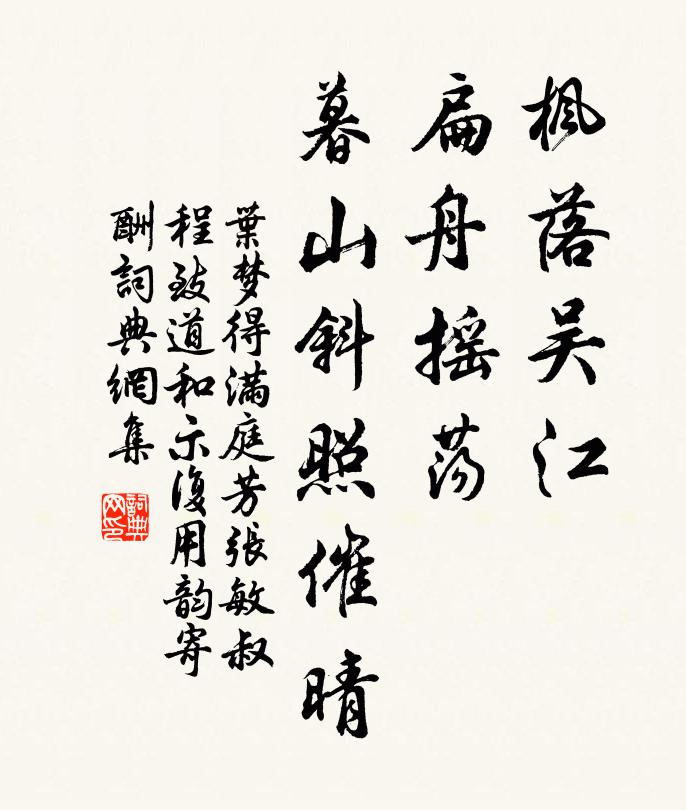 枫落吴江
扁舟摇荡
暮山斜照催晴
葉梦得满庭芳張敏叔
程致道和示復用韵寄
酬詞典網集
詞典网印